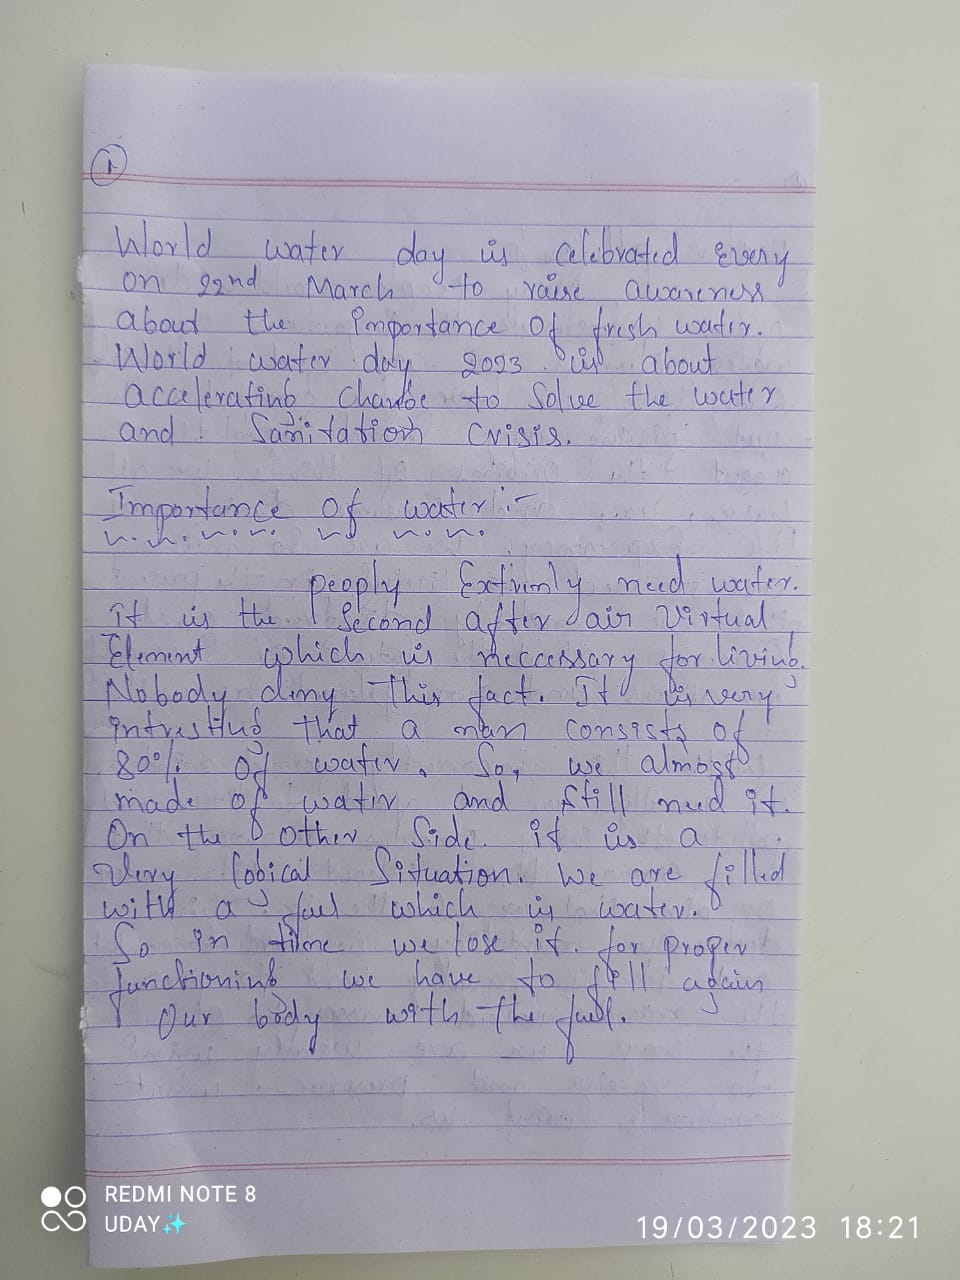 1
World water day is celebrated Every
on 22nd March to raise awareness
about the importance of fresh water.
World water day 2023 is about
accelerating change to Solve the water
and Sanitation crisis.
Importance of water :-
peoply Extrimly need water.
it is the Second after air virtual
Element which is neccessary for living.
Nobody deny This fact. It is very
intresting that a man consists of
80% of water. So, we almost
made of water and still need it.
On the other Side it is a
Very logical Situation. We are filled
with a fuel which is water.
So in time we lose it. for proper
functioning we have to fill again
Our body with The fuel.
REDMI NOTE 8
UDAY✨
19/03/2023 18:21